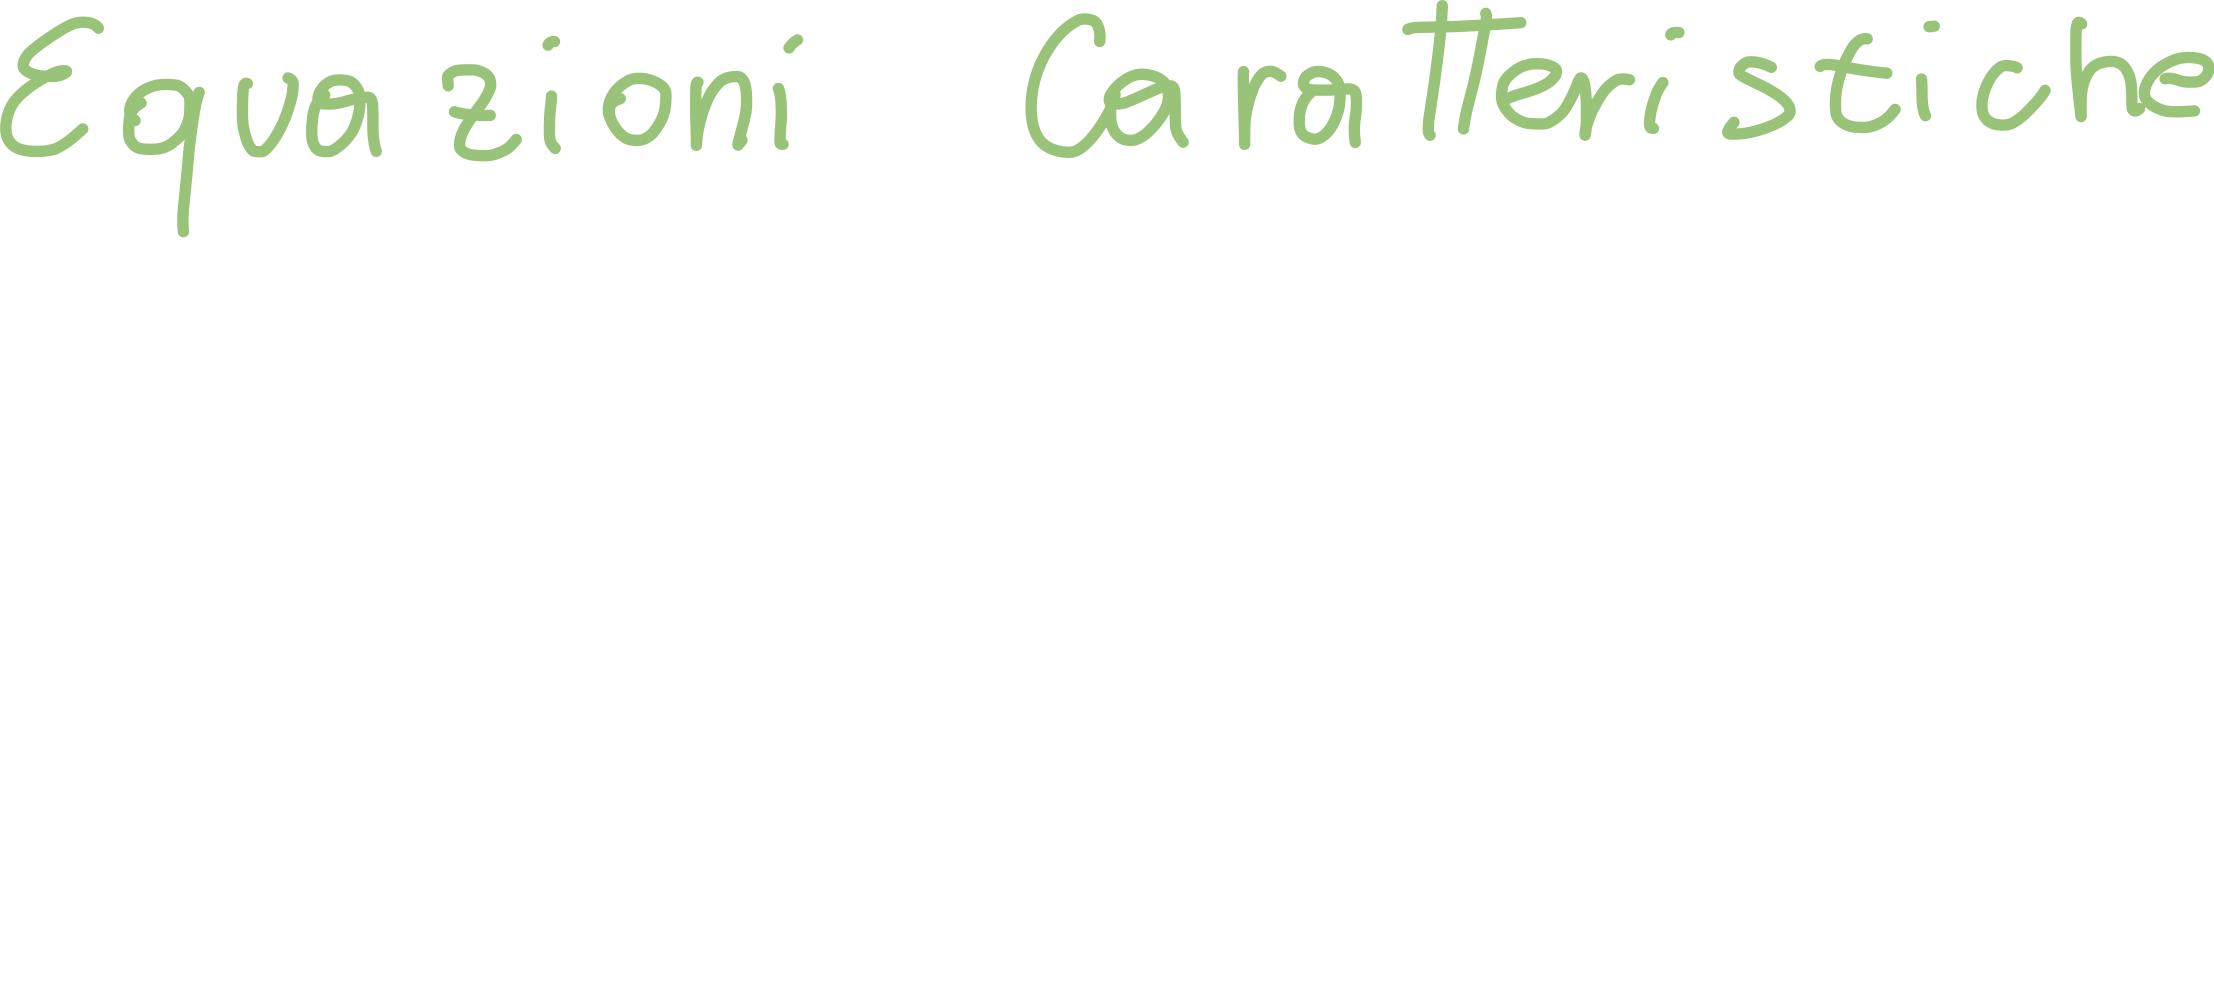 Equazioni Caratteristiche